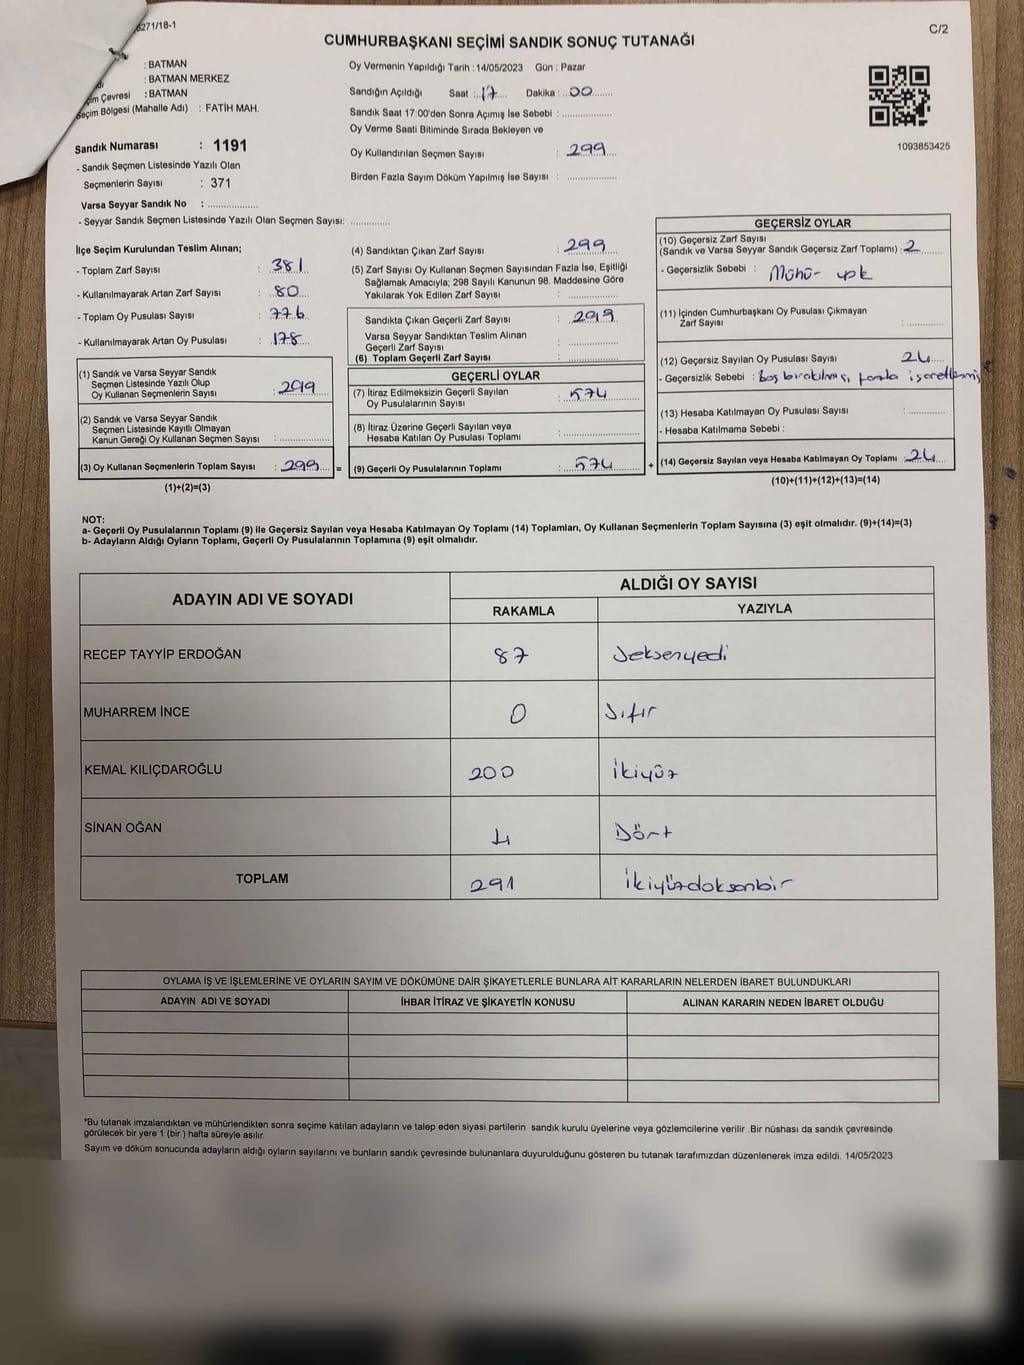 271/18-1
C/2
CUMHURBAŞKANI SEÇİMİ SANDIK SONUÇ TUTANAĞI
: BATMAN
: BATMAN MERKEZ
Çevresi : BATMAN
Seçim Bölgesi (Mahalle Adı) : FATİH MAH.
Sandık Numarası : 1191
- Sandık Seçmen Listesinde Yazılı Olan
Seçmenlerin Sayısı : 371
Varsa Seyyar Sandık No :
- Seyyar Sandık Seçmen Listesinde Yazılı Olan Seçmen Sayısı:
Oy Vermenin Yapıldığı Tarih : 14/05/2023 Gün : Pazar
Sandığın Açıldığı Saat : 17 Dakika : 00
Sandık Saat 17:00'den Sonra Açımış İse Sebebi :
Oy Verme Saati Bitiminde Sırada Bekleyen ve
Oy Kullandırılan Seçmen Sayısı : 299
Birden Fazla Sayım Döküm Yapılmış İse Sayısı :
1093853425
İlçe Seçim Kurulundan Teslim Alınan;
- Toplam Zarf Sayısı : 381
- Kullanılmayarak Artan Zarf Sayısı : 80
- Toplam Oy Pusulası Sayısı : 776
- Kullanılmayarak Artan Oy Pusulası : 178
(1) Sandık ve Varsa Seyyar Sandık
Seçmen Listesinde Yazılı Olup
Oy Kullanan Seçmenlerin Sayısı : 299
(2) Sandık ve Varsa Seyyar Sandık
Seçmen Listesinde Kayıtlı Olmayan
Kanun Gereği Oy Kullanan Seçmen Sayısı :
(3) Oy Kullanan Seçmenlerin Toplam Sayısı : 299 =
(1)+(2)=(3)
(4) Sandıktan Çıkan Zarf Sayısı : 299
(5) Zarf Sayısı Oy Kullanan Seçmen Sayısından Fazla İse, Eşitliği
Sağlamak Amacıyla; 298 Sayılı Kanunun 98. Maddesine Göre
Yakılarak Yok Edilen Zarf Sayısı :
Sandıkta Çıkan Geçerli Zarf Sayısı : 299
Varsa Seyyar Sandıktan Teslim Alınan
Geçerli Zarf Sayısı :
(6) Toplam Geçerli Zarf Sayısı :
GEÇERLİ OYLAR
(7) İtiraz Edilmeksizin Geçerli Sayılan
Oy Pusulalarının Sayısı : 574
(8) İtiraz Üzerine Geçerli Sayılan veya
Hesaba Katılan Oy Pusulası Toplamı :
(9) Geçerli Oy Pusulalarının Toplamı : 574 +
GEÇERSİZ OYLAR
(10) Geçersiz Zarf Sayısı
(Sandık ve Varsa Seyyar Sandık Geçersiz Zarf Toplamı) : 2
- Geçersizlik Sebebi : Mühür yok
(11) İçinden Cumhurbaşkanı Oy Pusulası Çıkmayan
Zarf Sayısı :
(12) Geçersiz Sayılan Oy Pusulası Sayısı 24
- Geçersizlik Sebebi : boş bırakılması, fazla işaretlenmiş
(13) Hesaba Katılmayan Oy Pusulası Sayısı :
- Hesaba Katılmama Sebebi :
(14) Geçersiz Sayılan veya Hesaba Katılmayan Oy Toplamı : 24
(10)+(11)+(12)+(13)=(14)
NOT:
a- Geçerli Oy Pusulalarının Toplamı (9) ile Geçersiz Sayılan veya Hesaba Katılmayan Oy Toplamı (14) Toplamları, Oy Kullanan Seçmenlerin Toplam Sayısına (3) eşit olmalıdır. (9)+(14)=(3)
b- Adayların Aldığı Oyların Toplamı, Geçerli Oy Pusulalarının Toplamına (9) eşit olmalıdır.
ADAYIN ADI VE SOYADI
ALDIĞI OY SAYISI
RAKAMLA YAZIYLA
RECEP TAYYİP ERDOĞAN 87 Seksenyedi
MUHARREM İNCE 0 Sıfır
KEMAL KILIÇDAROĞLU 200 İkiyüz
SİNAN OĞAN 4 Dört
TOPLAM 291 İkiyüzdoksanbir
OYLAMA İŞ VE İŞLEMLERİNE VE OYLARIN SAYIM VE DÖKÜMÜNE DAİR ŞİKAYETLERLE BUNLARA AİT KARARLARIN NELERDEN İBARET BULUNDUKLARI
ADAYIN ADI VE SOYADI İHBAR İTİRAZ VE ŞİKAYETİN KONUSU ALINAN KARARIN NEDEN İBARET OLDUĞU
*Bu tutanak imzalandıktan ve mühürlendikten sonra seçime katılan adayların ve talep eden siyasi partilerin sandık kurulu üyelerine veya gözlemcilerine verilir .Bir nüshası da sandık çevresinde
görülecek bir yere 1 (bir ) hafta süreyle asılır.
Sayım ve döküm sonucunda adayların aldığı oyların sayılarını ve bunların sandık çevresinde bulunanlara duyurulduğunu gösteren bu tutanak tarafımızdan düzenlenerek imza edildi. 14/05/2023